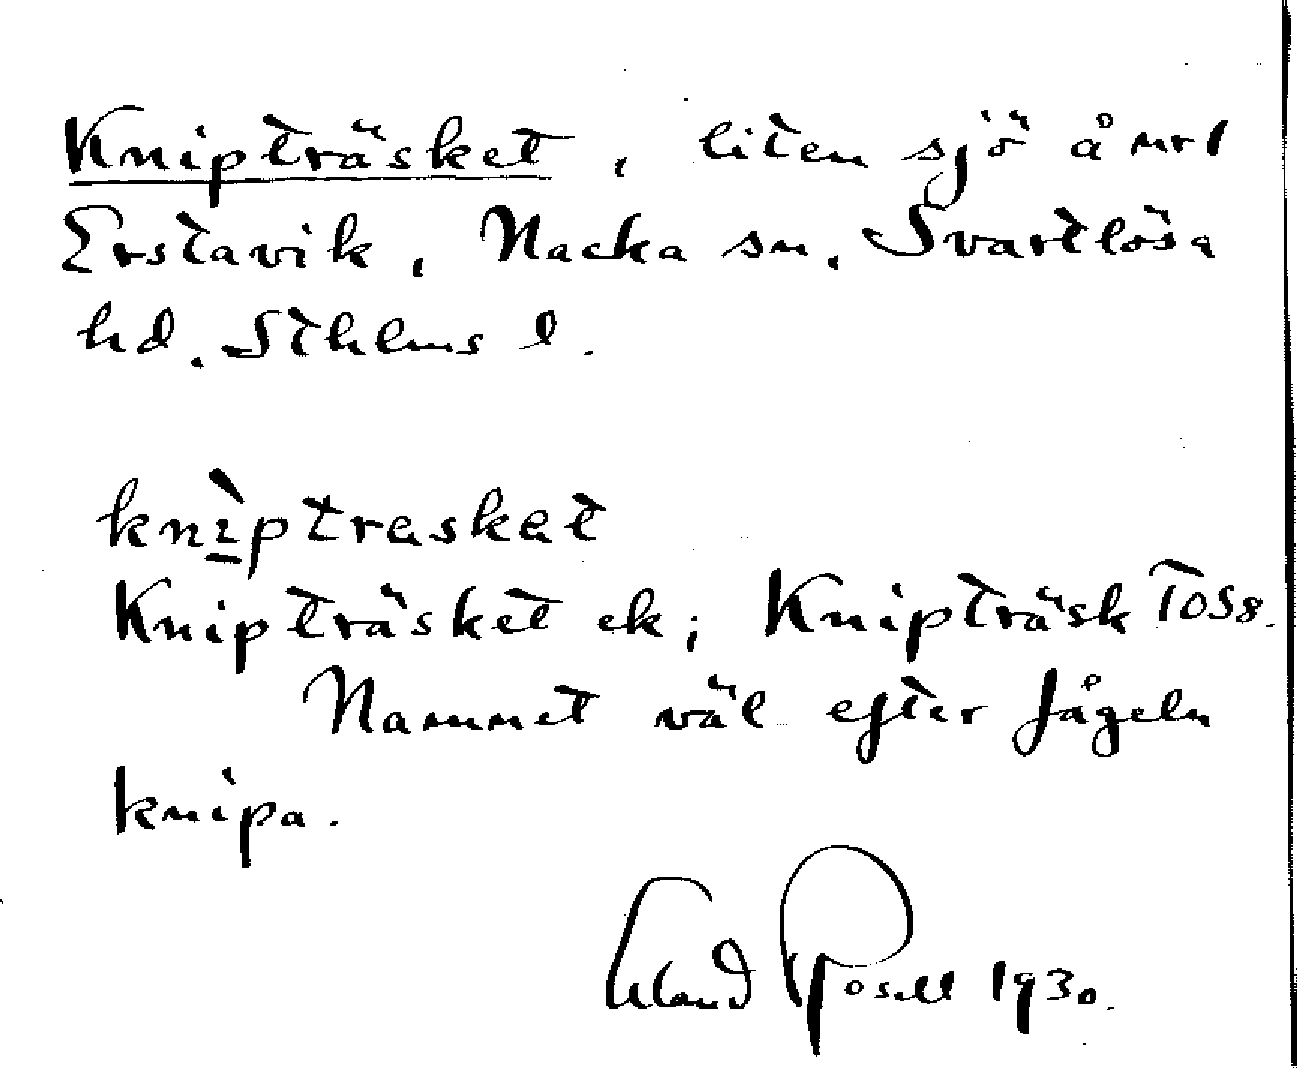 Knipträsket, liten sjö å
Erstavik, Nacka sn, Svartlösa
hd. Sthlms l.
knìptraskat
Knipträsket ek; Knipträsk
Nammet väl efter fågeln
knipa.
Rosell 1930.